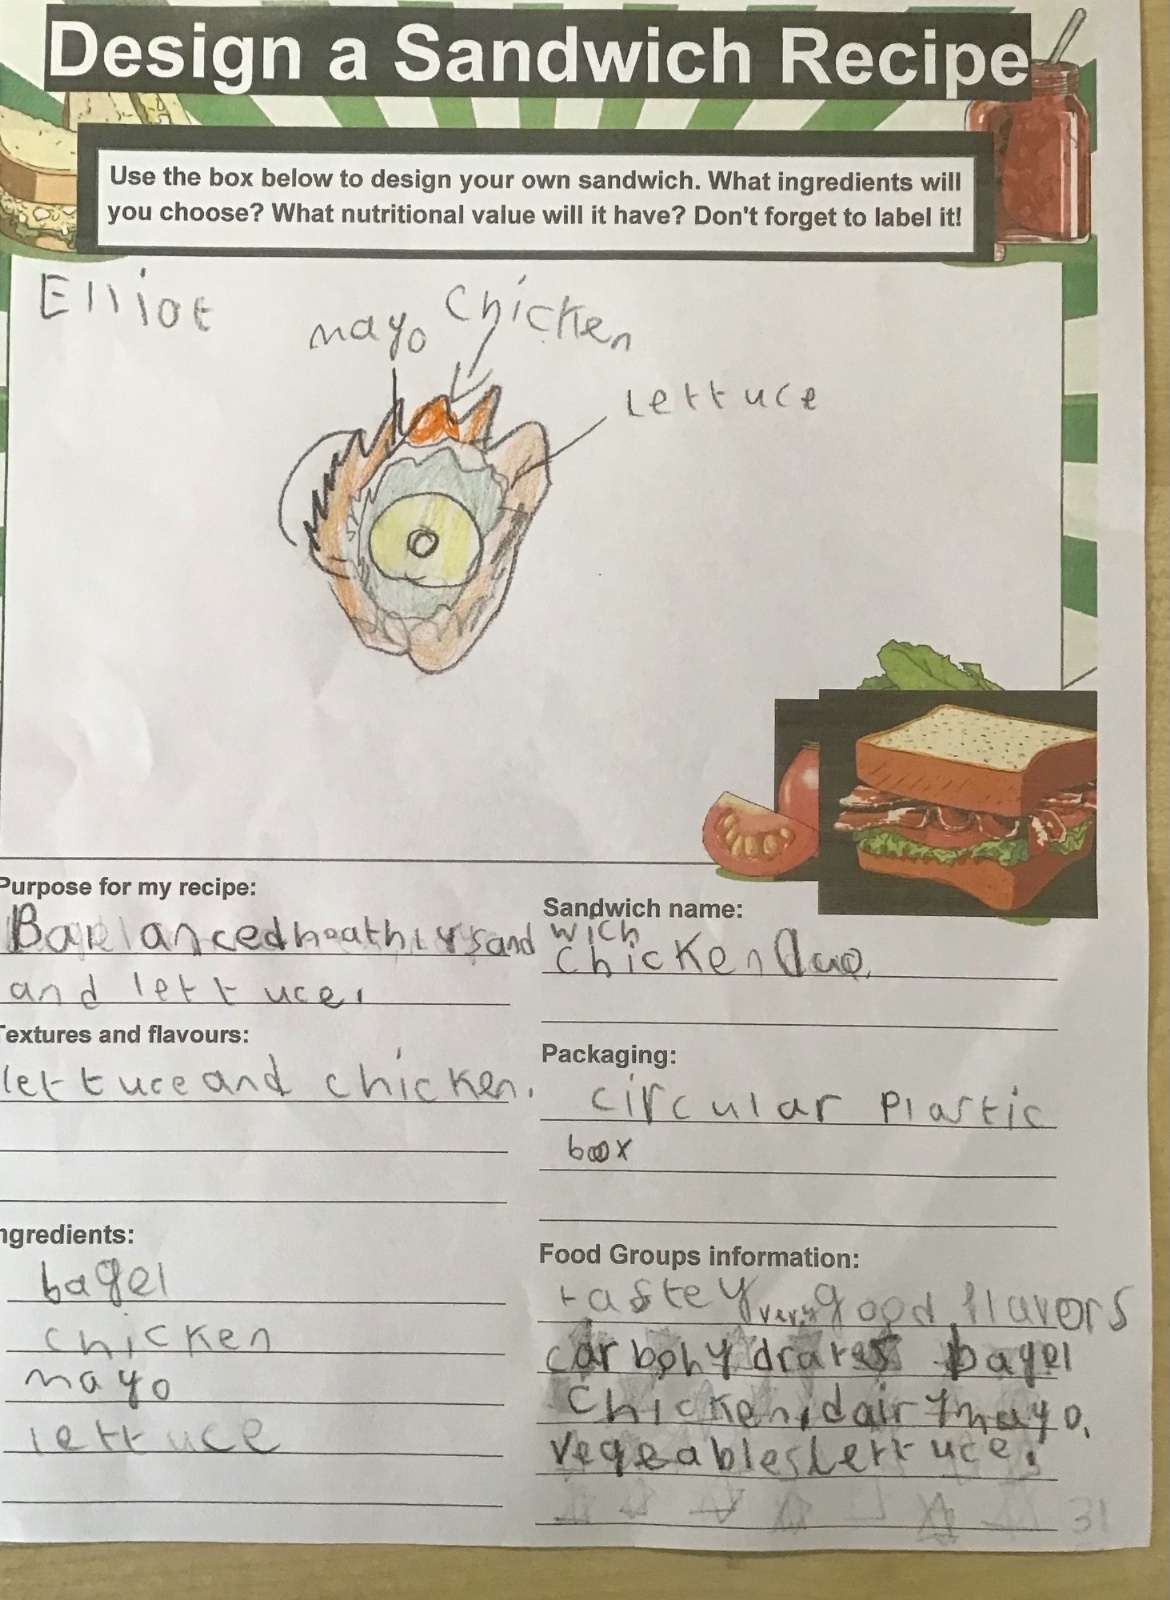 Design a Sandwich Recipe
Use the box below to design your own sandwich. What ingredients will
you choose? What nutritional value will it have? Don't forget to label it!
Elliot
mayo chicken
lettuce
Purpose for my recipe:
Barlanced heathly sandwich
and lettuce.
Textures and flavours:
lettuce and chicken.
ngredients:
bagel
chicken
mayo
lettuce
Sandwich name:
chicken duo.
Packaging:
circular Plastic
box
Food Groups information:
tastey very good flavors
carbohydrates bagel
Chicken, dairy mayo.
vegeables Lettuce.
31